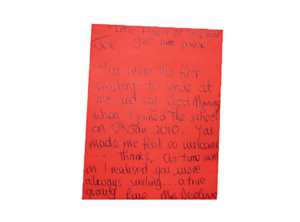 Joe
You were the first
to smile at
me and say Good Morning
when I joined the school
on 5th Jan 2010. You
made me feel so welcome
... Thanks, As time went
on I realised you were
always smiling... a true
quality